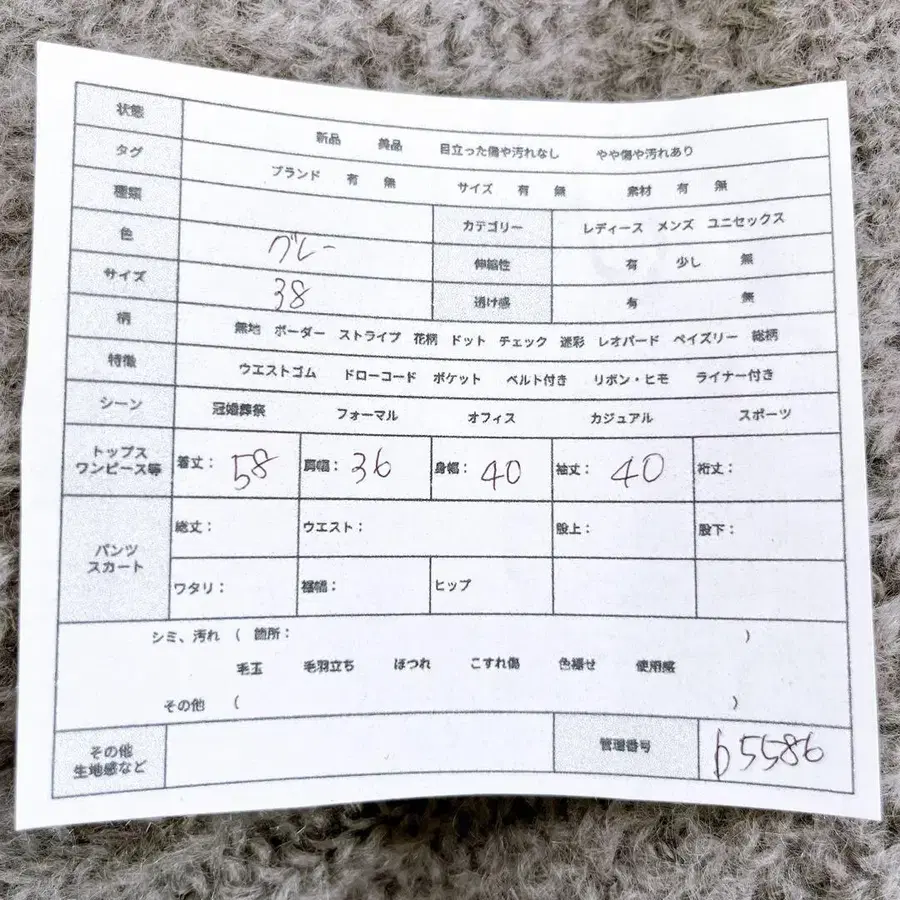 状態 新品 美品 目立った傷や汚れなし やや傷や汚れあり
タグ ブランド 有 無 サイズ 有 無 素材 有 無
種類 カテゴリー レディース メンズ ユニセックス
色 グレー 伸縮性 有 少し 無
サイズ 38 透け感 有 無
柄 無地 ボーダー ストライプ 花柄 ドット チェック 迷彩 レオパード ペイズリー 総柄
特徴 ウエストゴム ドローコード ポケット ベルト付き リボン・ヒモ ライナー付き
シーン 冠婚葬祭 フォーマル オフィス カジュアル スポーツ
トップス
ワンピース等 着丈: 58 肩幅: 36 身幅: 40 袖丈: 40 裄丈:
パンツ
スカート
総丈: ウエスト: 股上: 股下:
ワタリ: 裾幅: ヒップ
シミ、汚れ ( 箇所: )
毛玉 毛羽立ち ほつれ こすれ傷 色褪せ 使用感
その他 ( )
その他
生地感など 管理番号 b5586